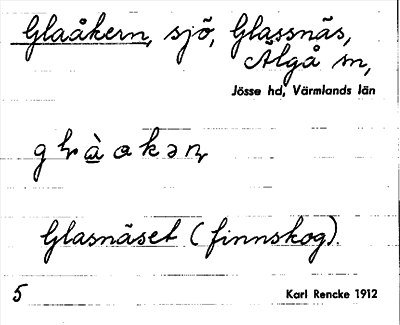 Glaåkern, sjö, Glassnäs,
Älgå sn,
Jösse hd, Värmlands län
Glasnäset (finnskog).
5
Karl Rencke 1912